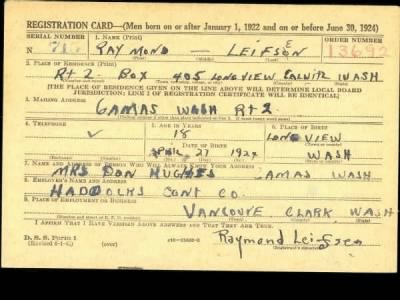 REGISTRATION CARD—(Men born on or after January 1, 1922 and on or before June 30, 1924)
SERIAL NUMBER 1. NAME (Print) ORDER NUMBER
N RAYMOND — LEIFSEN 13692
(First) (Middle) (Last)
2. PLACE OF RESIDENCE (Print)
Rt 2 Box 405 LONGVIEW COWLITZ WASH
[THE PLACE OF RESIDENCE GIVEN ON THE LINE ABOVE WILL DETERMINE LOCAL BOARD
JURISDICTION; LINE 2 OF REGISTRATION CERTIFICATE WILL BE IDENTICAL]
3. MAILING ADDRESS
CAMAS WASH Rt 2
4. TELEPHONE 5. AGE IN YEARS 6. PLACE OF BIRTH
18 LONGVIEW
DATE OF BIRTH
APRIL 27 1924 WASH
7. NAME AND ADDRESS OF PERSON WHO WILL ALWAYS KNOW YOUR ADDRESS
MRS DON HUGHES CAMAS WASH
8. EMPLOYER'S NAME AND ADDRESS
HADDOCKS CONT CO.
9. PLACE OF EMPLOYMENT OR BUSINESS
VANCOUVE CLARK WASH
I AFFIRM THAT I HAVE VERIFIED ABOVE ANSWERS AND THAT THEY ARE TRUE.
D. S. S. Form 1
(Revised 6-1-42) (over) Raymond Leifsen
(Registrant's signature)